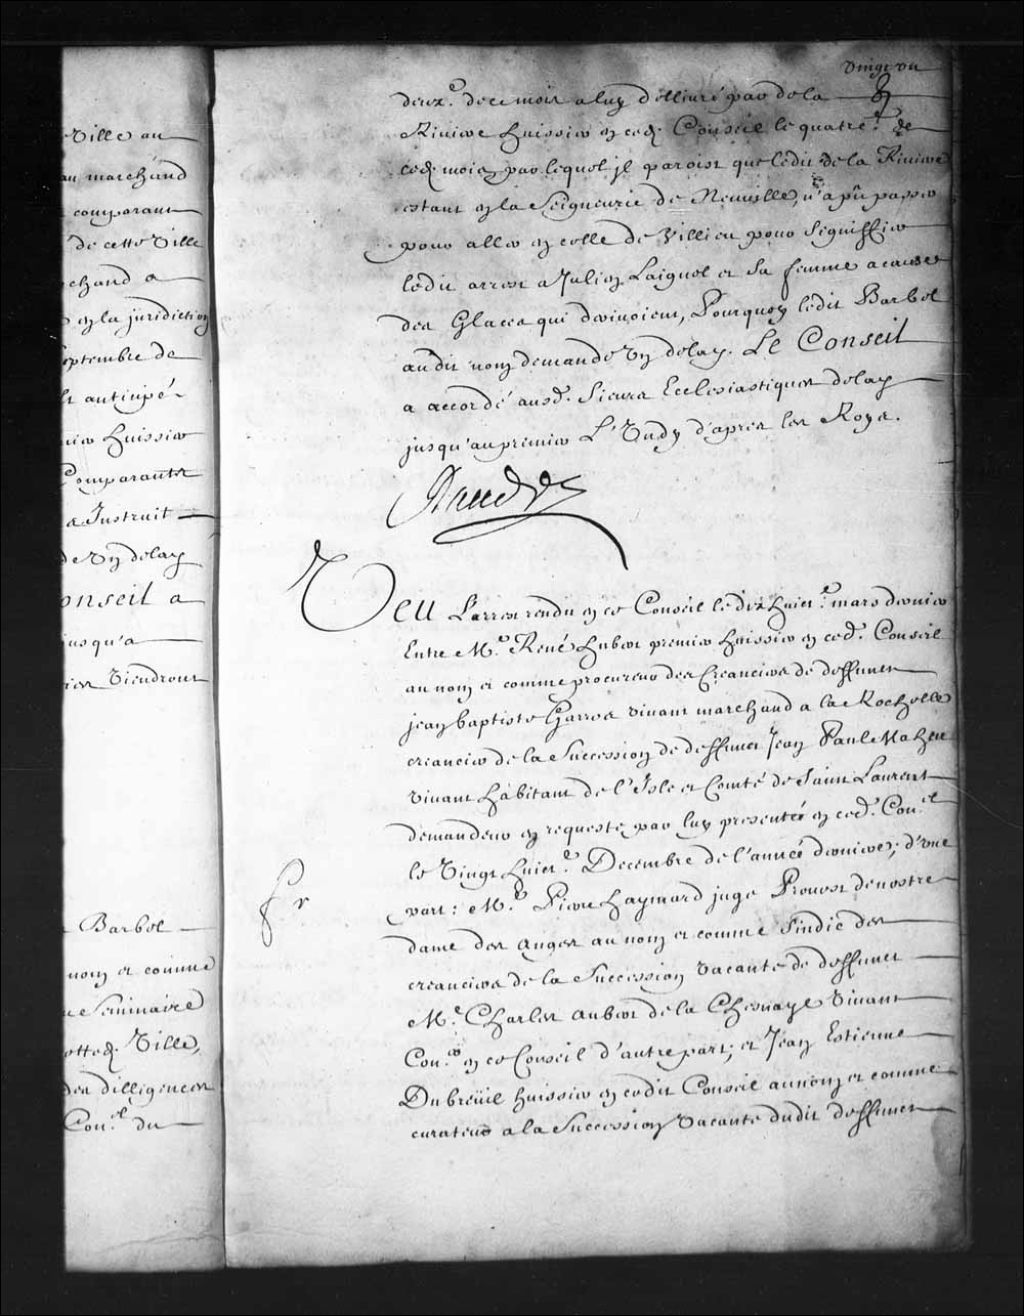 Ville au
au marchand
comparant
de cette Ville
chand a
en la juridiction
eptembre de
anticipé
huissier
Comparants
a Instruit
de un delay
onseil a
jusqu'a
Viendront
Barbel
nom et comme
Seminaire
Ville,
des dilligences
Con.el du
vingt un
deux.e de ce mois a luy dellivré par de la
Riviere huissier en ced. Conseil le quatre.e de
ced. mois, par lequel il paroist que ledit de la Riviere
estant en la Seigneurie de Neuville, n'a pû passer
pour aller en celle de Villieu pour signiffier
ledit arrest a Julien Laignel et sa femme a cause
des Glaces qui derivoient, Pourquoy ledit Barbel
audit nom demande un delay. Le Conseil
a accordé ausd. Sieurs Ecclesiastiques delay
jusqu'au premier L'Undy d'apres les Roys.
Veu L'arrest rendu en ce Conseil le dix huict.e mars dernier
Entre M.e René hubert premier huissier en ced. Conseil
au nom et comme procureur des Creanciers de deffunct
jean baptiste Garros vivant marchand a la Rochelle
creancier de la Succession de deffunct Jean Paul Maheu
vivant habitant de l'Isle et Comté de Saint Laurent
demandeur en requeste par luy presentée en ced. Con.el
le Vingt huict.e Decembre de l'année derniere; d'une
part: M.e Pierre haymard juge Prevost de nostre
dame des Anges au nom et comme Sindic des
creanciers de la Succession vacante de deffunct
M.e Charles Aubert de la Chesnaye Vivant
Con.er en ce Conseil d'autre part; et Jean Estienne
Dubreüil huissier en cedit Conseil au nom et comme
curateur a la Succession Vacante dudit deffunct